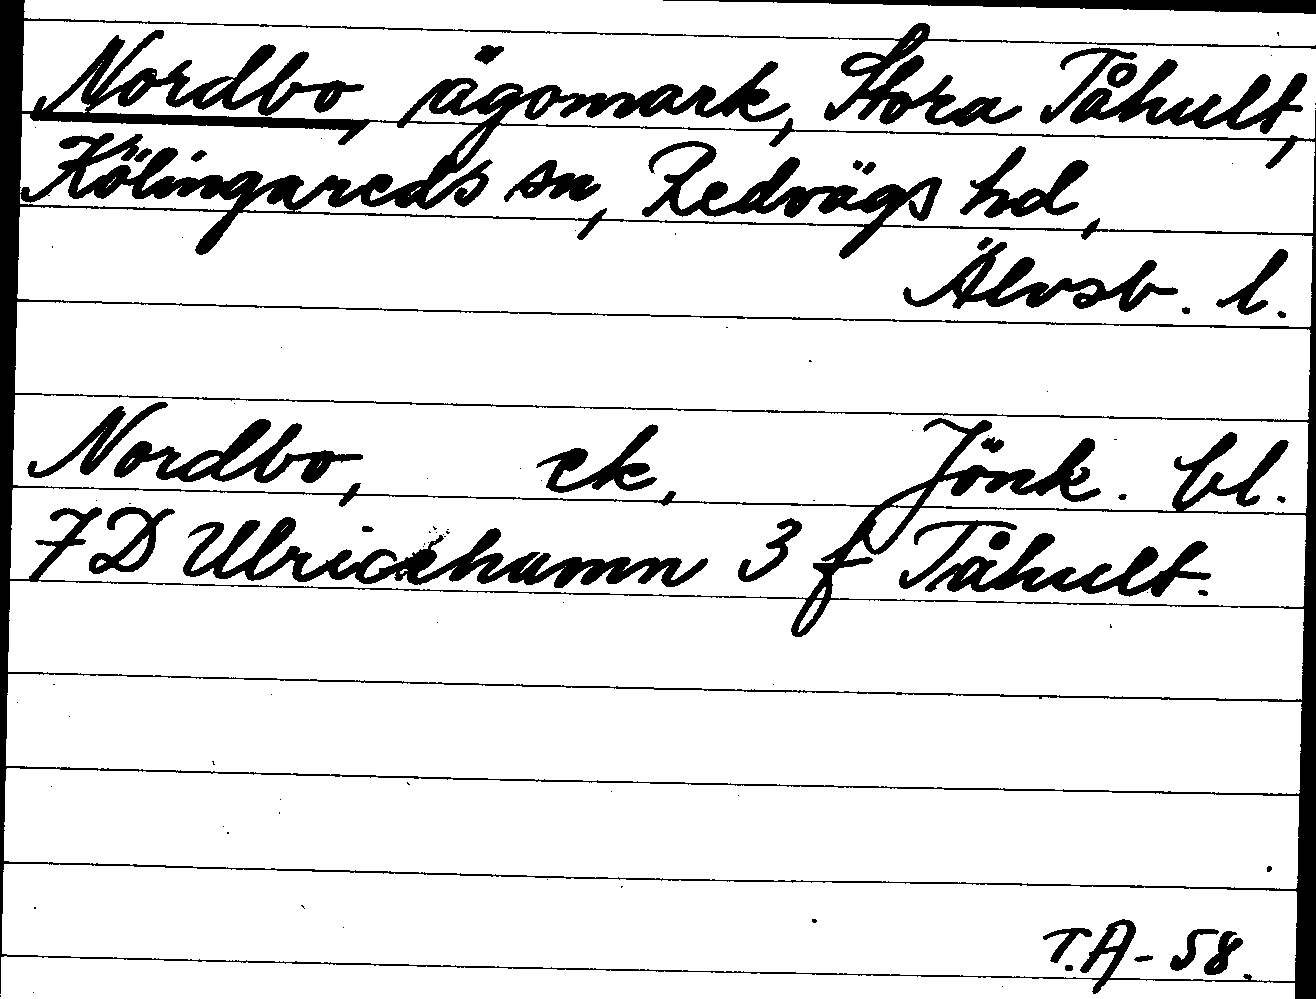 Nordbo, ägomark, Stora Tåhult,
Kölingareds sn, Redvägs hd,
Älvsb. l.
Nordbo, ek, Jönk. bl.
7D Ulricehamn 3 f Tåhult.
T.A-58.